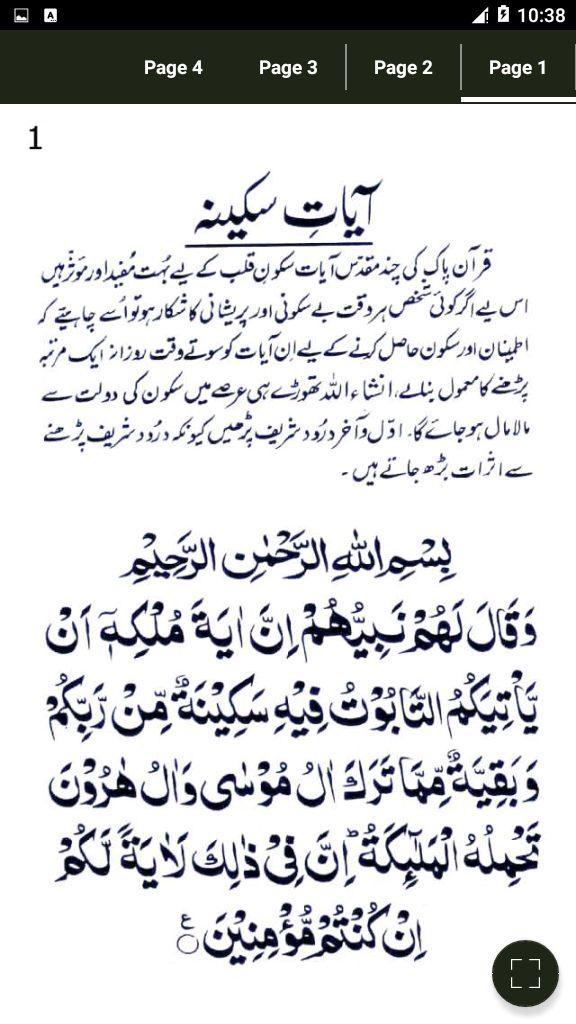 10:38
Page 4 Page 3 Page 2 Page 1
1
آیاتِ سکینہ
قرآن پاک کی چند مقدّس آیات سکونِ قلب کے لیے بہت مُفید اور مؤثر ہیں
اس لیے اگر کوئی شخص ہر وقت بے سکونی اور پریشانی کا شکار ہو تو اُسے چاہیئے کہ
اطمینان اور سکون حاصل کرنے کے لیے اِن آیات کو سوتے وقت روزانہ ایک مرتبہ
پڑھنے کا معمول بنالے، انشاء اللہ تھوڑے ہی عرصے میں سکون کی دولت سے
مالا مال ہو جائے گا۔ اوّل و آخر درُود شریف پڑھیں کیونکہ درُود شریف پڑھنے
سے اثرات بڑھ جاتے ہیں۔
بِسْمِ اللهِ الرَّحْمٰنِ الرَّحِيْمِ
وَقَالَ لَهُمْ نَبِيُّهُمْ اِنَّ اٰيَةَ مُلْكِهٖٓ اَنْ
يَّاْتِيَكُمُ التَّابُوْتُ فِيْهِ سَكِيْنَةٌ مِّنْ رَّبِّكُمْ
وَبَقِيَّةٌ مِّمَّا تَرَكَ اٰلُ مُوْسٰى وَاٰلُ هٰرُوْنَ
تَحْمِلُهُ الْمَلٰٓئِكَةُ ؕ اِنَّ فِيْ ذٰلِكَ لَاٰيَةً لَّكُمْ
اِنْ كُنْتُمْ مُّؤْمِنِيْنَ ۝ ع